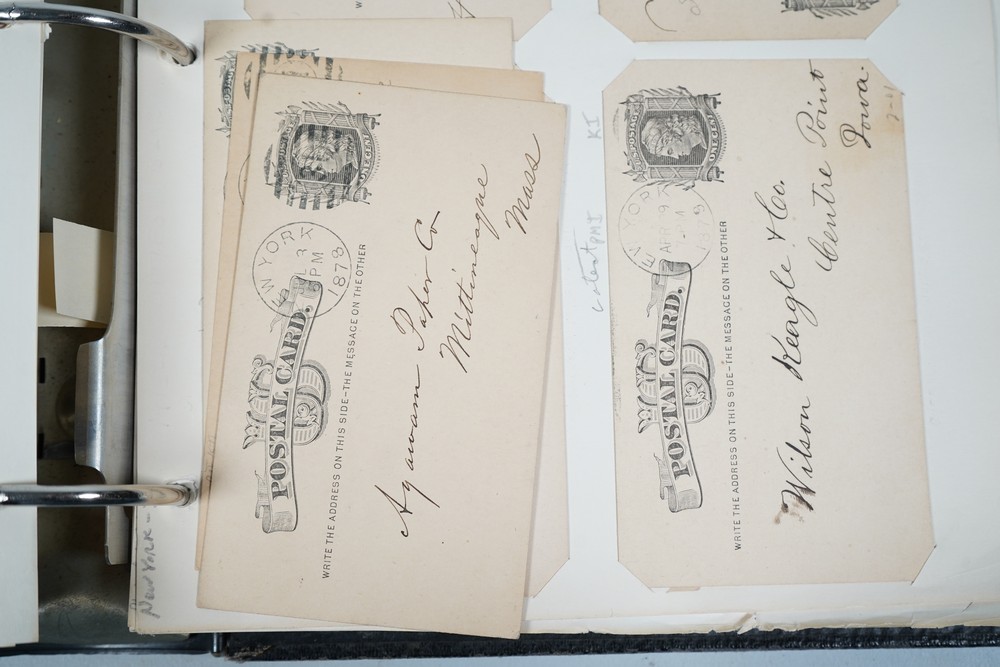 U.S. POSTAGE
ONE CENT
NEW YORK
3
PM
1878
POSTAL CARD.
WRITE THE ADDRESS ON THIS SIDE-THE MESSAGE ON THE OTHER
Agawam Paper Co
Mittineague
Mass
U.S. POSTAGE
ONE CENT
NEW YORK
APR 9
1878
POSTAL CARD.
WRITE THE ADDRESS ON THIS SIDE-THE MESSAGE ON THE OTHER
Wilson Keagle & Co.
Centre Point
Iowa.
New York